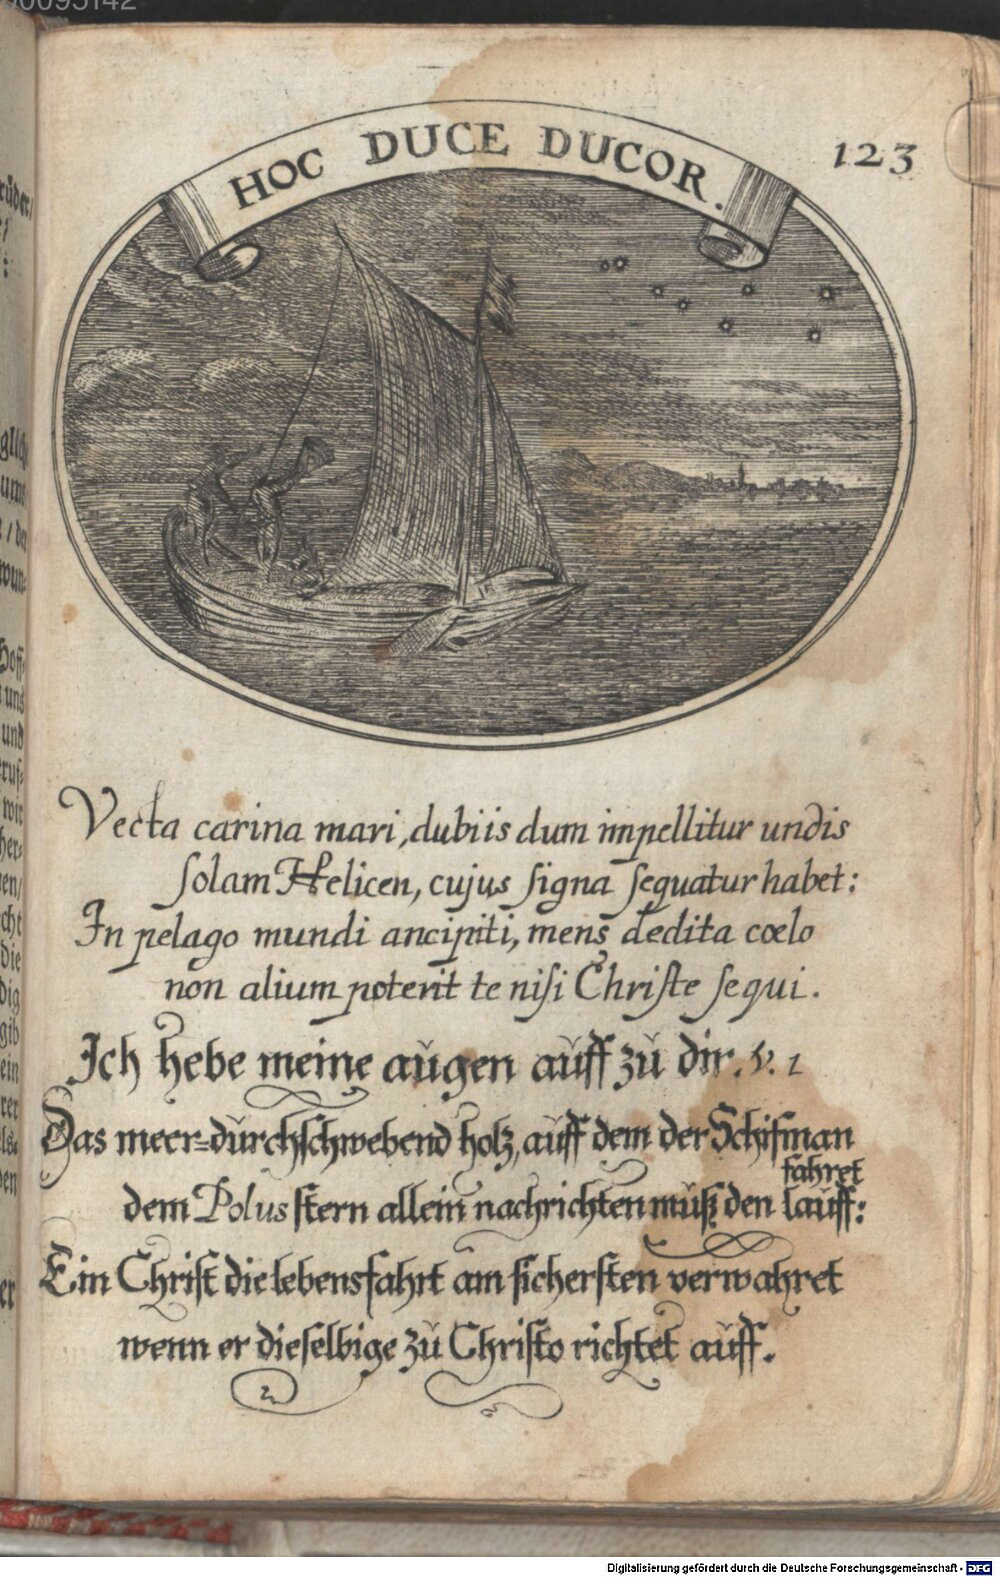 HOC DUCE DUCOR.
123
Vecta carina mari, dubiis dum impellitur undis
ſolam Helicen, cujus ſigna ſequatur habet:
In pelago mundi ancipiti, mens dedita cœlo
non alium poterit te niſi Chriſte ſequi.
Ich hebe meine augen auff zů dir. v. 1
Das meer=dŭrchſchwebend holz, aŭff dem der Schifman
fahret
dem Polus ſtern allein nachrichten mŭß den laŭff:
Ein Chriſt die lebensfahrt am ſicherſten verwahret
wenn er dieſelbige zŭ Chriſto richtet aŭff.
Digitalisierung gefördert durch die Deutsche Forschungsgemeinschaft - DFG